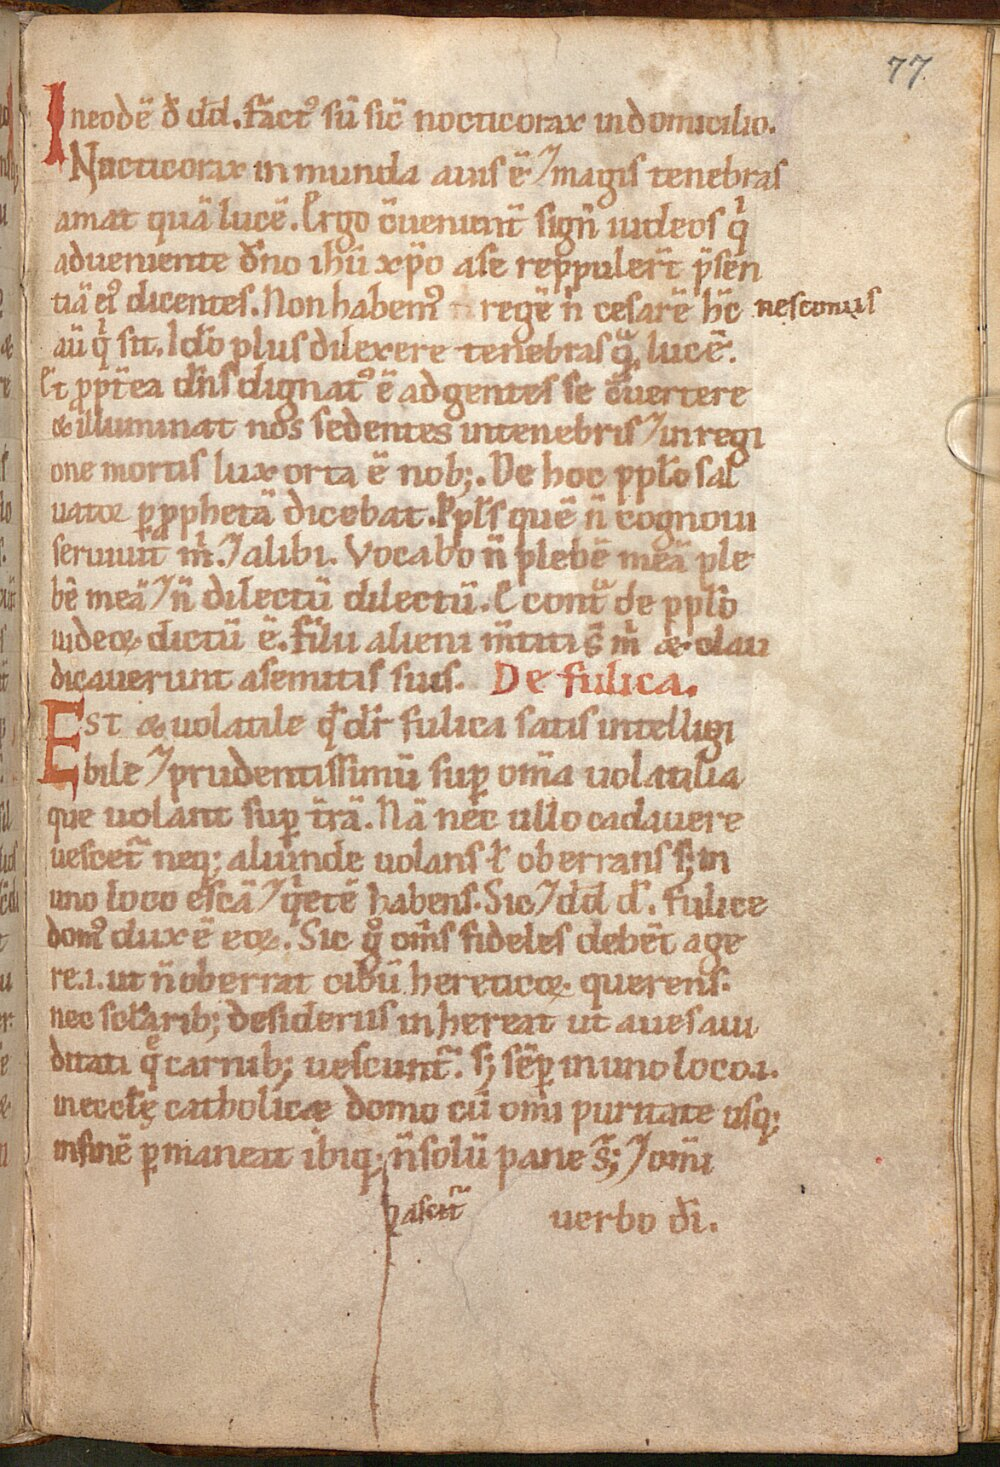 77
Ineodē d̄ dd̄. fact᷒ sū sic̄ nocticorax indomicilio.
Nocticorax inmunda auis ē ⁊magis tenebras
amat quā lucē. Ergo ꝯueniunt̄ sign̄ iudeos qͥ
adueniente dn̄o ihū xp̄o ase reppuler̄t p̄sen
tiā ei᷒ dicentes. Non habem᷒ regē n̄ cesarē hc̄ nescimus
aū qͥ sit. Idō plus dilexere tenebras qͣ̄ lucē.
Et ꝓpt̄ea dn̄s dignat᷒ ē adgentes se ꝯuertere
& illuminat nos sedentes intenebris ⁊inregi
one mortis lux orta ē nob;. De hoc ppłō sal
uator ꝑ ꝓphetā dicebat. Ppłs quē n̄ cognoui
seruiuit m̄. ⁊alibi. Vocabo n̄ plebē meā ple
bē meā ⁊n̄ dilectū dilectū. E cont̄ de ppłō
iudeoꝝ dictū ē. filii alieni m̄titi s̄ m̄ & clau
dicauerunt asemitis suis. De fulica.
Est & uolatile qd̄ dr̄ fulica satis intelligi
bile ⁊prudentissimū suꝑ om̄a uolatilia
que uolant suꝑ t̄rā. Nā nec ullo cadauere
uescet̄ neq; aliunde uolans ł oberrans s; in
uno loco escā ⁊qͥetē habens. Sic ⁊dd̄ d̄. fulice
dom᷒ dux ē eoꝝ. Sic gͦ om̄s fideles debēt age
re .i. ut n̄ oberrat cibū hereticoꝝ querens.
nec sclarib; desideriis inhereat ut aues aui
ditati qͤ carnib; uescunt̄. s; sēꝑ in uno loco .i.
in eccłę catholicæ domo cū omī puritate usq;
infinē ꝑmaneat ibiq; n̄solū pane s̄; ⁊omī
pascit̄ uerbo dī.